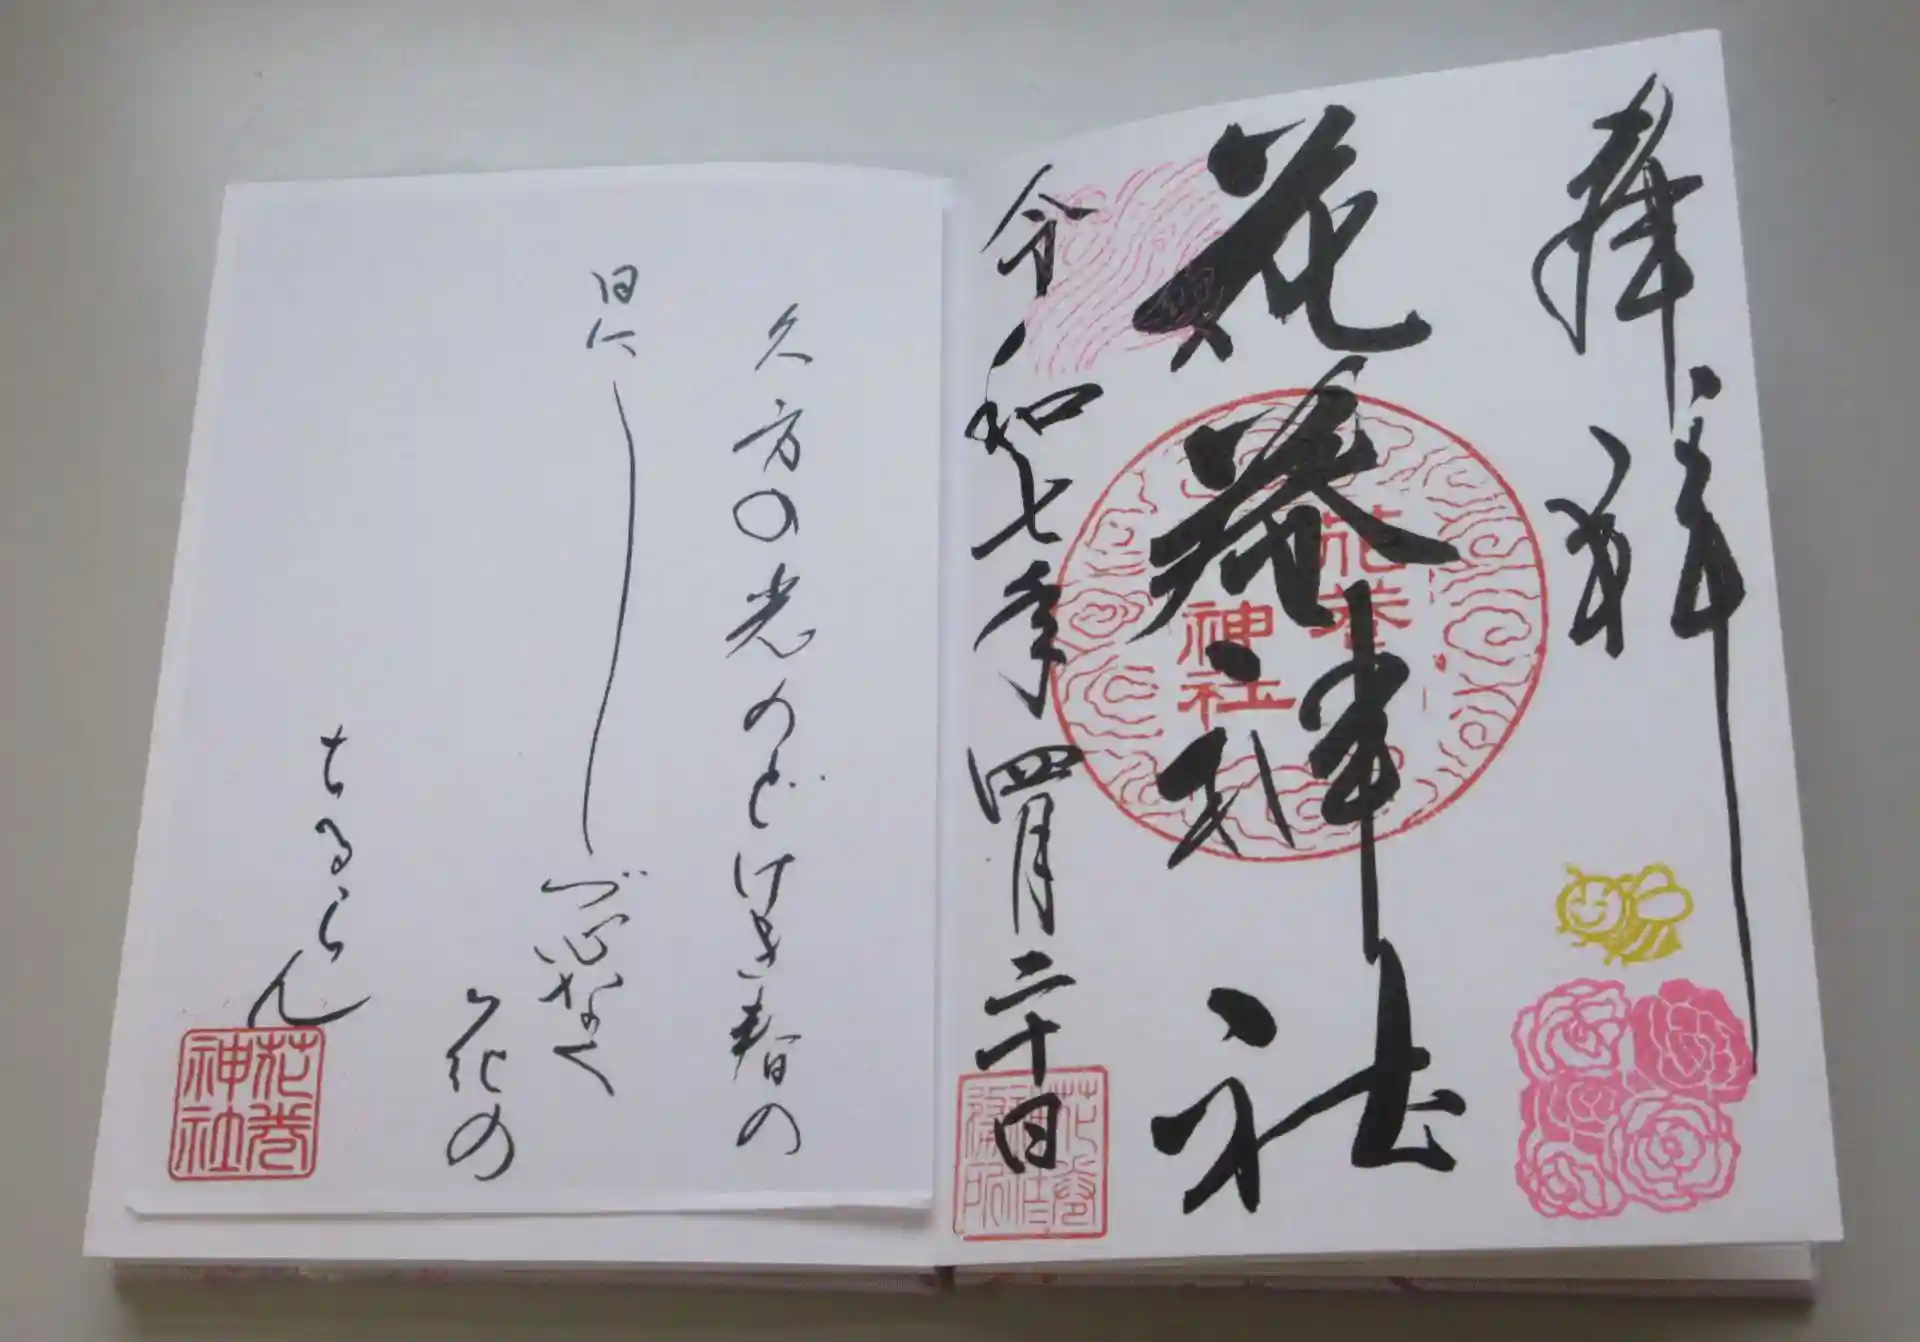 奉拝
花巻神社
花巻
神社
令和七年四月二十日
花巻
神社
務所
久方の光のどけき春の
日にしづ心なく
花の
ちるらん
花巻
神社